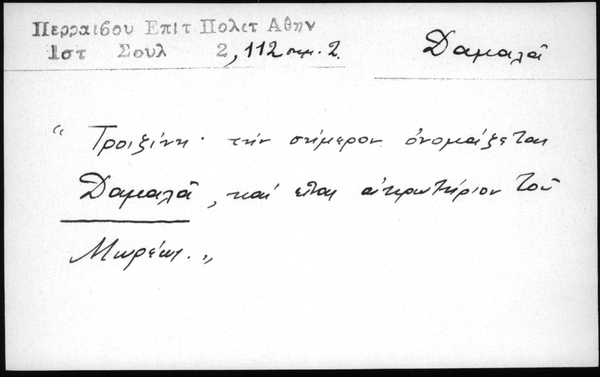 Περραιβου Επιτ Πολετ Αθην
Ιστ Σουλ 2, 112 σημ. 2.
Δαμαλᾶ
"Τροιξίνη· τὴν σήμερον ὀνομάζεται
Δαμαλᾶ, καί εἶναι ἀκρωτήριον τοῦ
Μωρέως."